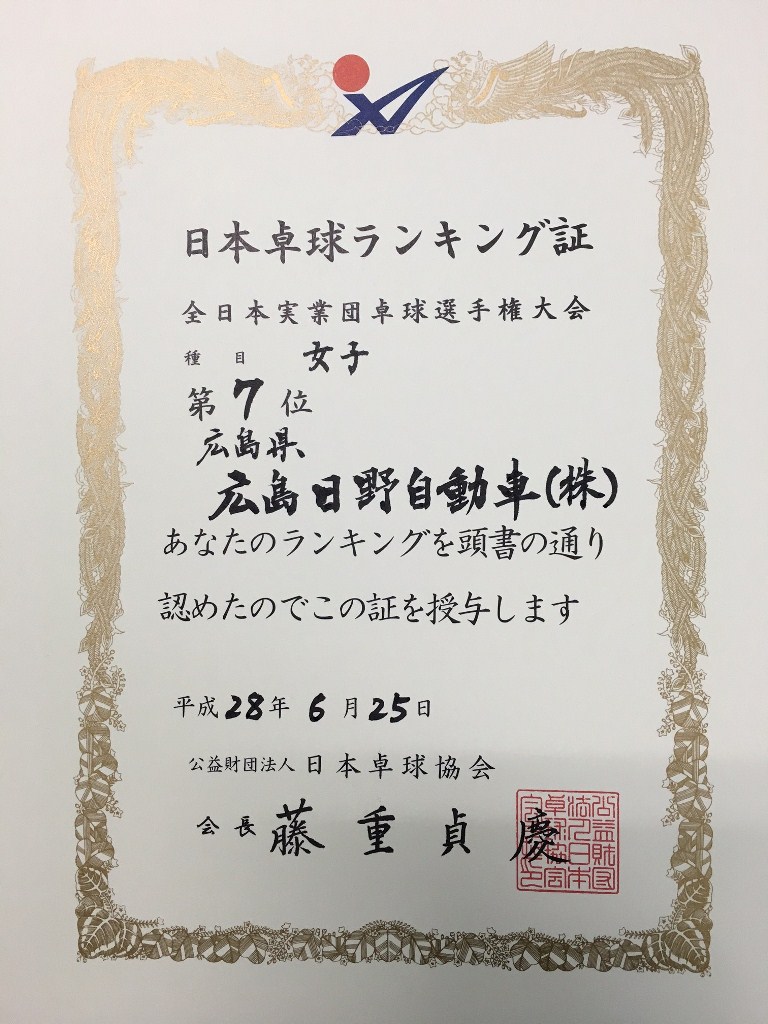 日本卓球ランキング証
全日本実業団卓球選手権大会
種目 女子
第7位
広島県
広島日野自動車(株)
あなたのランキングを頭書の通り
認めたのでこの証を授与します
平成28年6月25日
公益財団法人 日本卓球協会
会長 藤重貞慶